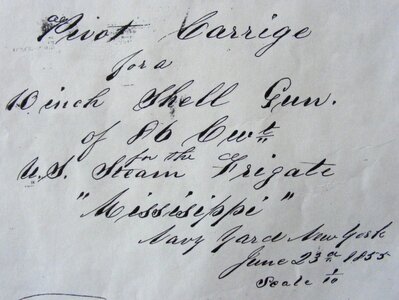 a Pivot Carrige
for a
10 inch Shell Gun.
of 86 Cwt
for the
U.S. Steam Frigate
"Missisippi"
Navy Yard New York
June 23d 1855
Scale 1/10